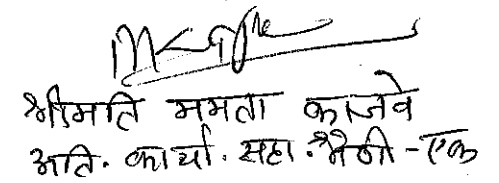 श्रीमति ममता काजवे
अति. कार्या. सहा. श्रेणी - एक